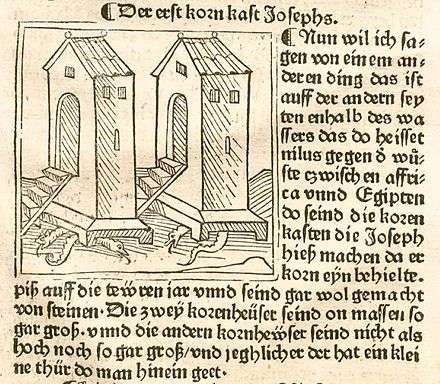 ¶ Der erst korn kast Josephs.
¶ Nun wil ich sa-
gen von einem an-
deren ding das ist
auff der andern sey
ten enhalb des wa
ssers das do heisset
nilus gegen d̄ wü-
ste czwischen affri-
ca vnnd Egipten
do seind die koren
kasten die Joseph
hieß machen da er
korn eyn behielte.
piß auff die tewren iar vnnd seind gar wol gemacht
von steinen. Die zwey korenheüser seind on massen so
gar groß. vnnd die andern kornhewser seind nicht als
hoch noch so gar groß/vnd yeghlicher der hat ein klei
ne thür do man hinein geet.